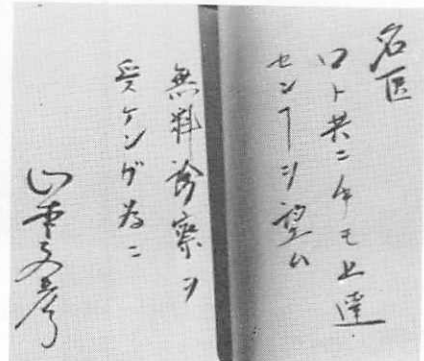 名医
口ト共ニ手モ上達
センコトヲ望ム
無料診察ヲ
受ケンガ為ニ